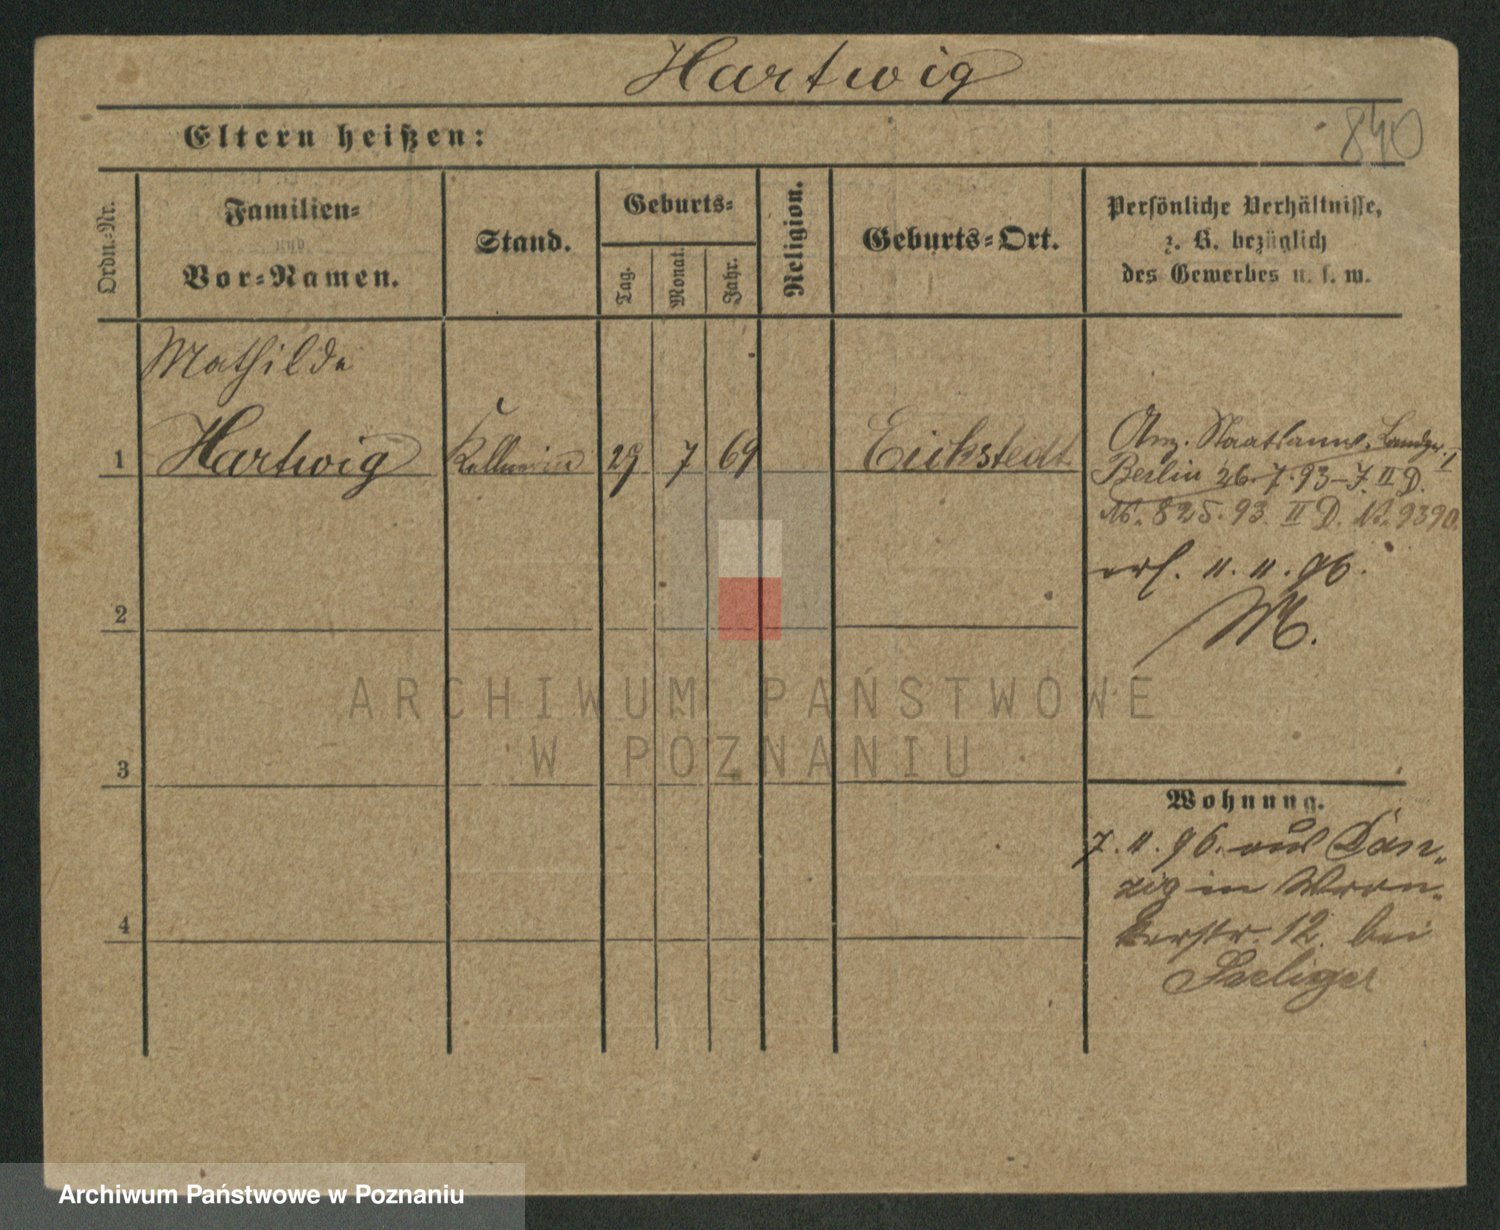 Hartwig
840
Eltern heißen:
Ordn.-Nr.
Familien-
und
Vor-Namen.
Stand.
Geburts-
Tag.
Monat.
Jahr.
Religion.
Geburts-Ort.
Persönliche Verhältnisse,
z. B. bezüglich
des Gewerbes u. s. w.
Mathilde
1 Hartwig Kellnerin 29 7 69 Eickstedt
Anz. Staatsanw. Landger. I
Berlin 26.7.93 – J. II D.
No. 825.93. II D. No. 9390.
erl. 11.11.96.
M.
2
3
4
Wohnung.
7.11.96. aus Dan-
zig in Wron-
kerstr. 12. bei
Seeliger
ARCHIWUM PAŃSTWOWE
W POZNANIU
Archiwum Państwowe w Poznaniu